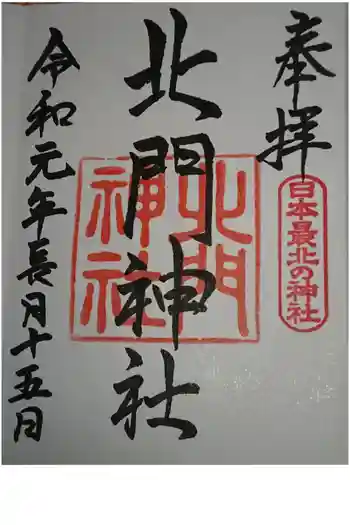 奉拝
日本最北の神社
北門神社
北門
神社
令和元年長月十五日